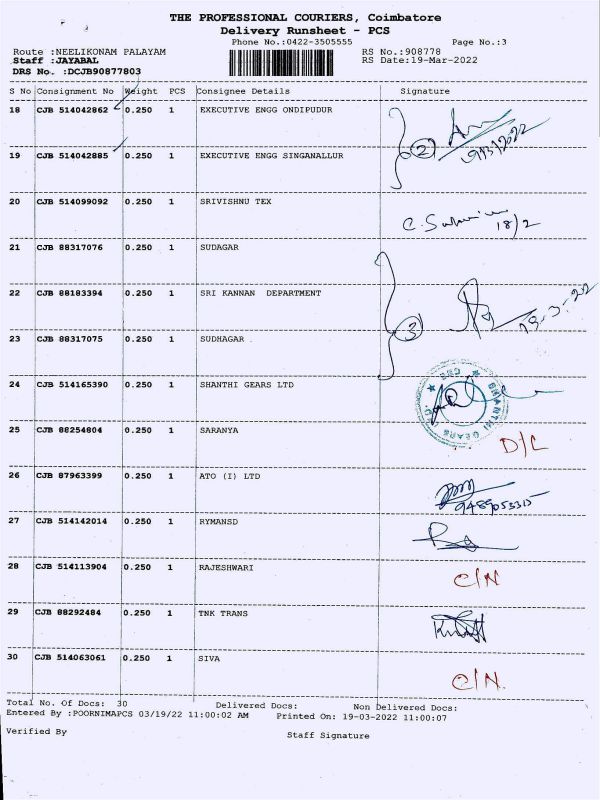 THE PROFESSIONAL COURIERS, Coimbatore
Delivery Runsheet - PCS
Phone No.:0422-3505555 Page No.:3
Route :NEELIKONAM PALAYAM RS No.:908778
Staff :JAYABAL RS Date:19-Mar-2022
DRS No. :DCJB90877803
S No Consignment No Weight PCS Consignee Details Signature
18 CJB 514042862 0.250 1 EXECUTIVE ENGG ONDIPUDUR
2
19 CJB 514042885 0.250 1 EXECUTIVE ENGG SINGANALLUR
20 CJB 514099092 0.250 1 SRIVISHNU TEX
18/2
21 CJB 88317076 0.250 1 SUDAGAR
22 CJB 88183394 0.250 1 SRI KANNAN DEPARTMENT
3
23 CJB 88317075 0.250 1 SUDHAGAR
24 CJB 514165390 0.250 1 SHANTHI GEARS LTD
SHANTHI GEARS
25 CJB 88254804 0.250 1 SARANYA D/L
26 CJB 87963399 0.250 1 ATO (I) LTD
27 CJB 514142014 0.250 1 RYMANSD
28 CJB 514113904 0.250 1 RAJESHWARI C/N
29 CJB 88292484 0.250 1 TNK TRANS
30 CJB 514063061 0.250 1 SIVA C/N
Total No. Of Docs: 30 Delivered Docs: Non Delivered Docs:
Entered By :POORNIMAPCS 03/19/22 11:00:02 AM Printed On: 19-03-2022 11:00:07
Verified By Staff Signature